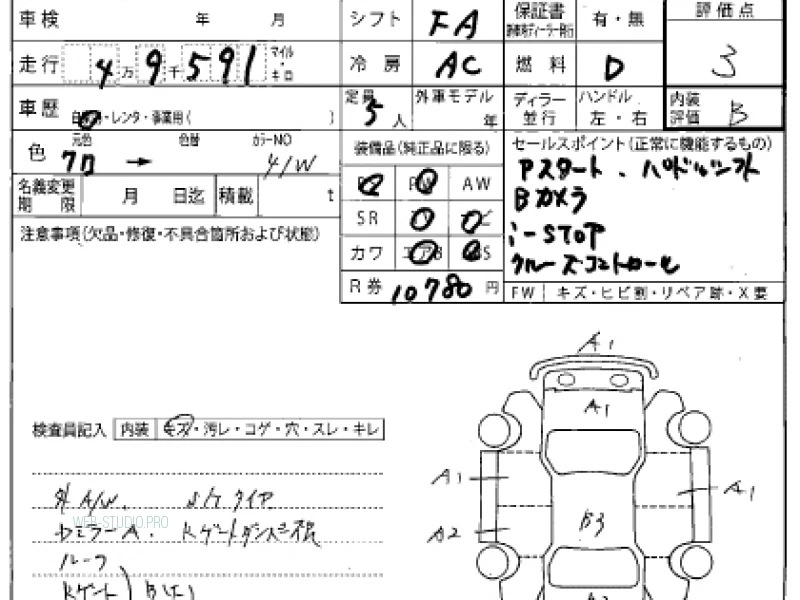 車検 年 月 シフト FA 保証書 有・無 評価点
走行 4万9千591 マイル・キロ 冷房 AC 燃料 D 3
車歴 ・レンタ・事業用( ) 定員 5人 外車モデル 年 ディラー並行 ハンドル 左・右 内装評価 B
色 元色 色替 カラーNO
クロ → 装備品(純正品に限る) セールスポイント(正常に機能するもの)
Pスタート、ハンドルシフト
名義変更期限 月 日迄 積載 t AW Bカメラ
SR i-STOP
注意事項(欠品・修復・不具合箇所および状態) カワ クルーズコントロール
R券 10780円 FW キズ・ヒビ割・リペア跡・X要
A1
A1
検査員記入 内装 キズ・汚レ・コゲ・穴・スレ・キレ
A1 A1
外 A/W. タイヤ
WEB-STUDIO.PRO
A2 B3
ルーフ
Kゲート